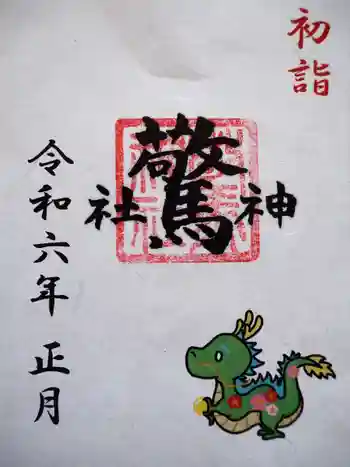 初詣
驚神社
令和六年 正月